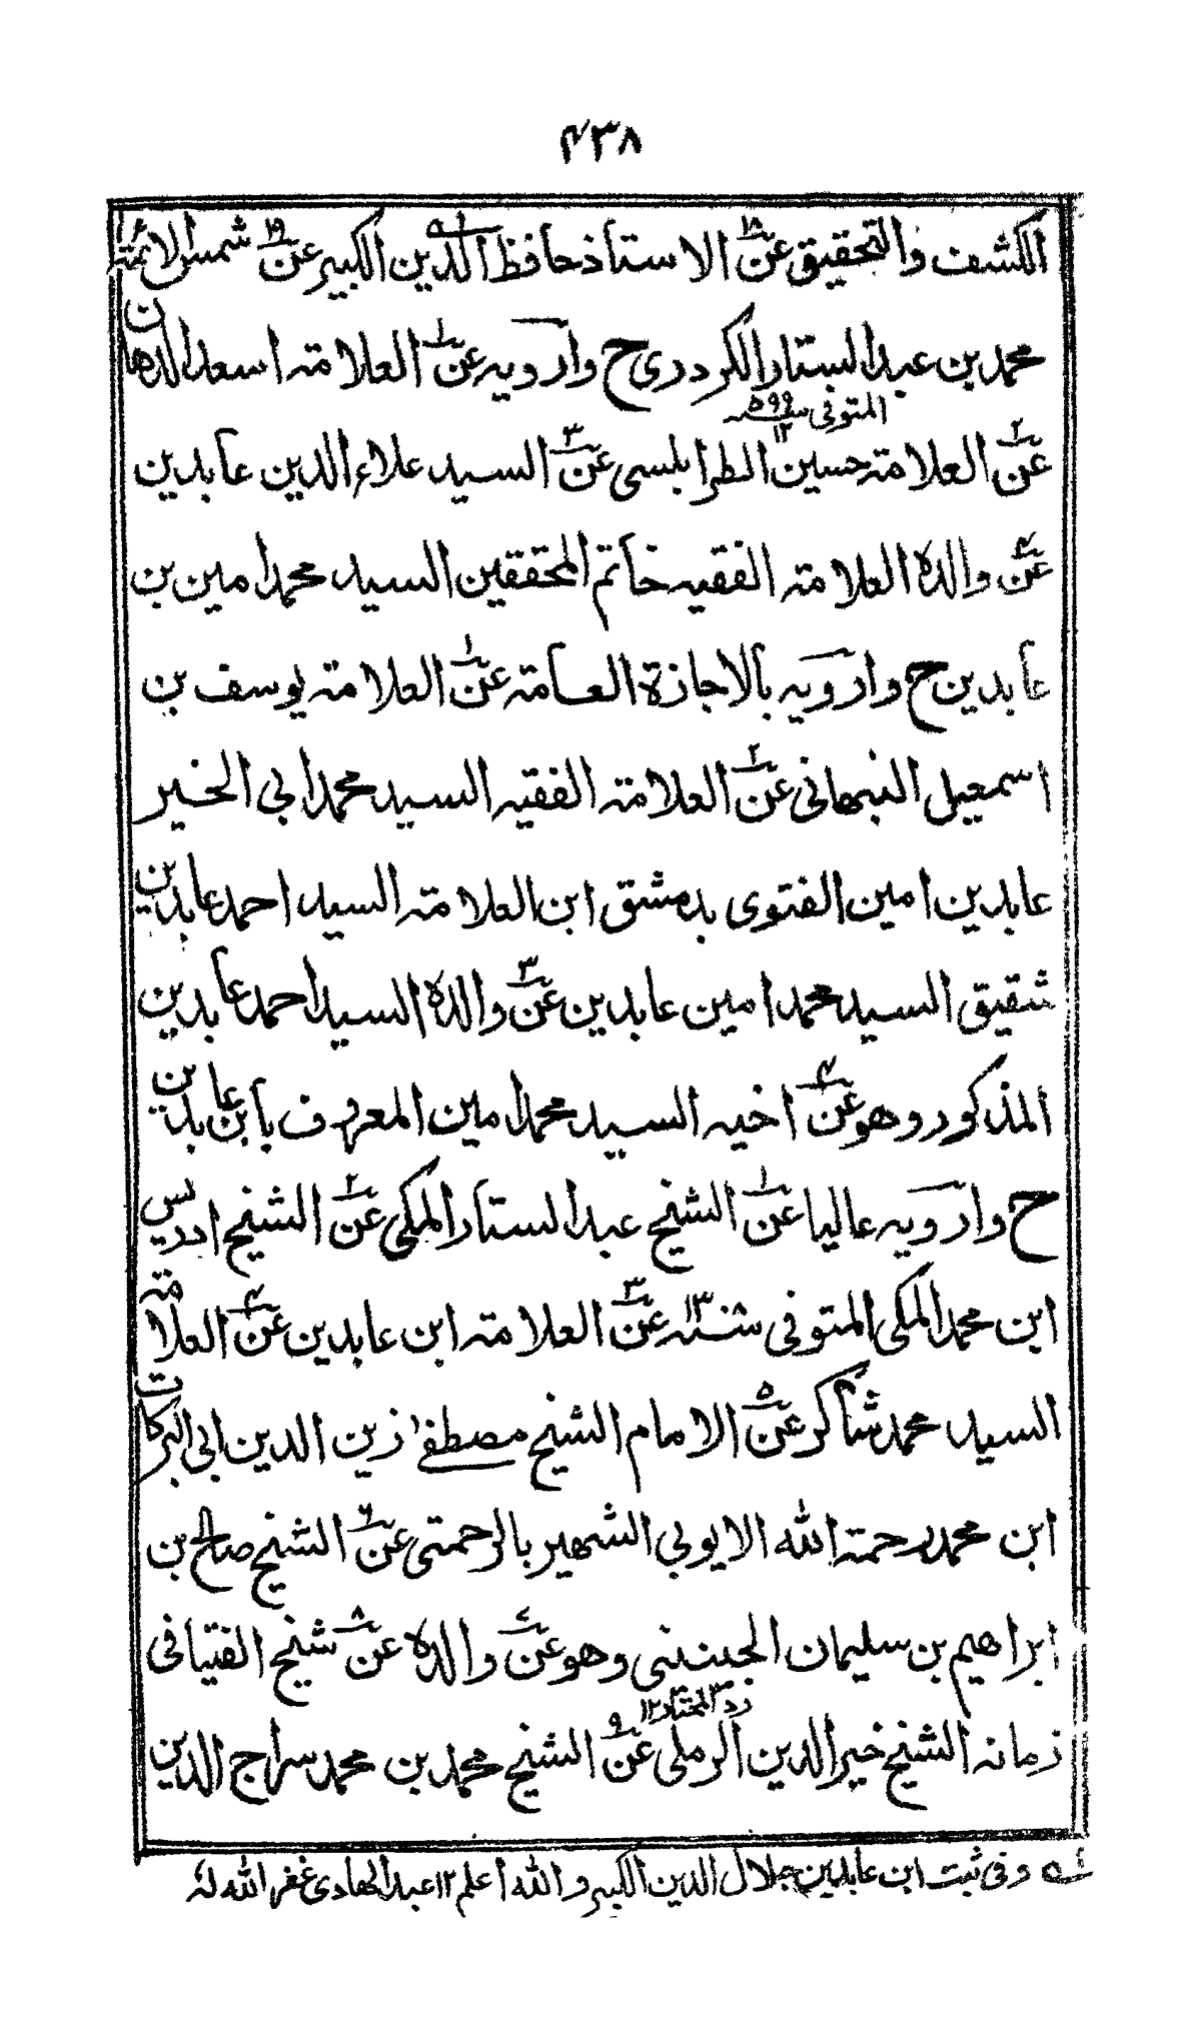 ٤٣٨
الكشف والتحقيق عن١٨ الاستاذ حافظ الدين الكبير عن١٩ شمس الائمة
محمد بن عبد الستار الكردري ح وارويه عن١ العلامة اسعد الدهان
المتوفى سنة ٥٩٩ ١٢
عن٢ العلامة حسين الطرابلسى عن٣ السيد علاء الدين عابدين
عن٤ والده العلامة الفقيه خاتم المحققين السيد محمد امين بن
عابدين ح وارويه بالاجازة العامة عن١ العلامة يوسف بن
اسمعيل النبهانى عن٢ العلامة الفقيه السيد محمد ابى الخير
عابدين امين الفتوى بدمشق ابن العلامة السيد احمد عابدين
شقيق السيد محمد امين عابدين عن٣ والده السيد احمد عابدين
المذكور وهو عن٤ اخيه السيد محمد امين المعروف بابن عابدين
ح وارويه عاليا عن١ الشيخ عبد الستار المكى عن٢ الشيخ ادريس
ابن محمد المكى المتوفى سنة عن٣ العلامة ابن عابدين عن٤ العلامة
السيد محمد شاكر عن٥ الامام الشيخ مصطفى زين الدين ابى البركات
ابن محمد رحمة الله الايوبي الشهير بالرحمتى عن٦ الشيخ صالح بن
ابراهيم بن سليمان الجينينى وهو عن٧ والده عن٨ شيخ الفتيا فى
رد المحتار ١٢
زمانه الشيخ خير الدين الرملى عن٩ الشيخ محمد بن محمد سراج الدين
وفى ثبت ابن عابدين جلال الدين الكبير والله اعلم ١٢ عبد الهادى غفر الله له